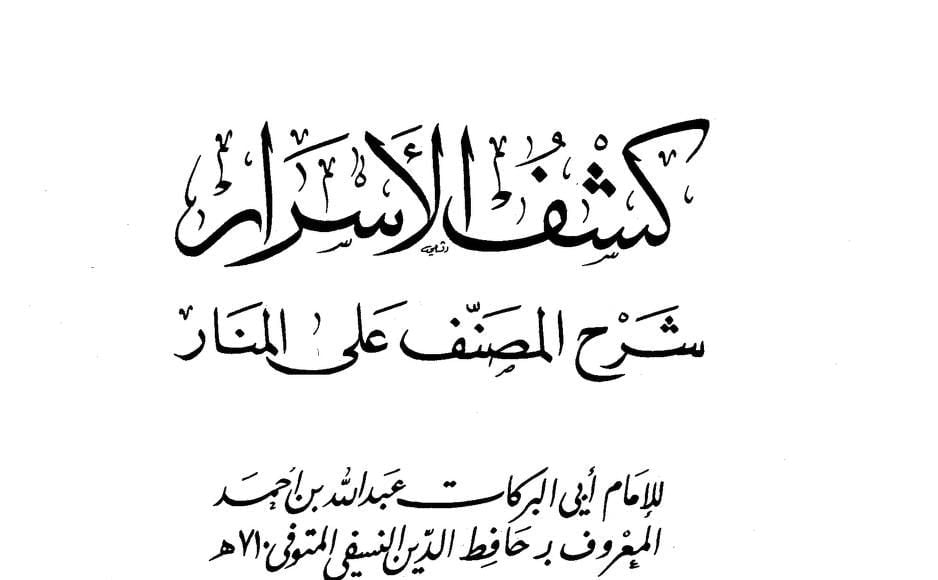 كشْفُ الأَسْرَار
شَرْح المصَنِّف عَلى المنَار
للإمَام أبي البركات عَبدالله بن أحمَد
المعْرُوف بـ حَافِظ الدّين النسفي المتوفى ٧١٠هـ